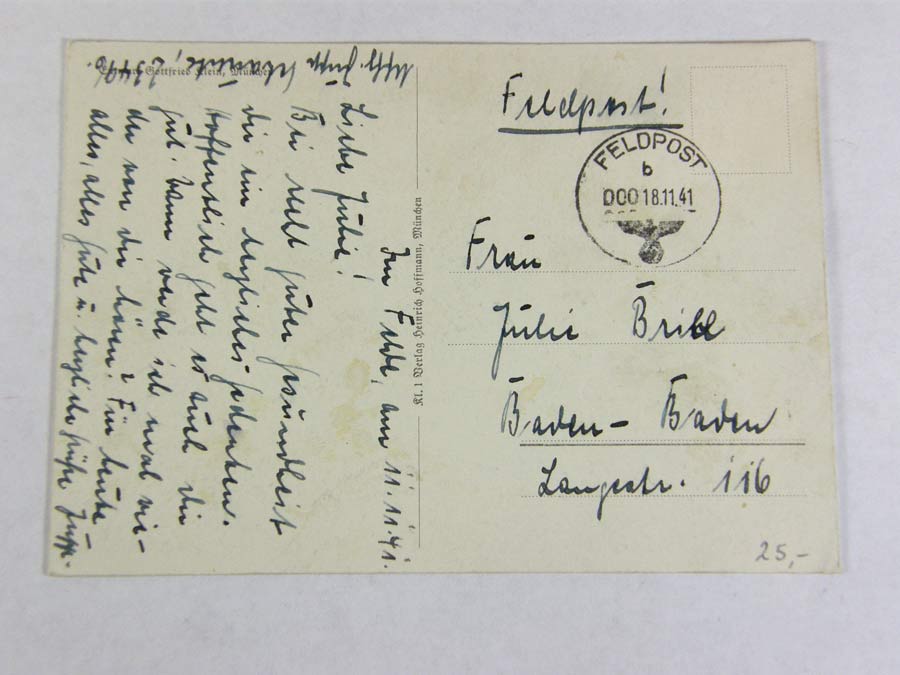 Feldpost!
FELDPOST
b
000 18.11.41
Frau
Julie Brill
Baden-Baden
Langestr. 116
25,-
Kl. 1 Verlag Heinrich Hoffmann, München
Gottfried Klein, München
Im Felde, am 11.11.41.
Liebe Julie!
Bei sehr guter Gesundheit
dir ein herzliches Gedenken.
Hoffentlich geht es auch dir
gut. Wann werde ich mal wie-
der von dir hören? Für heute
alles, alles Gute u. herzliche Grüße